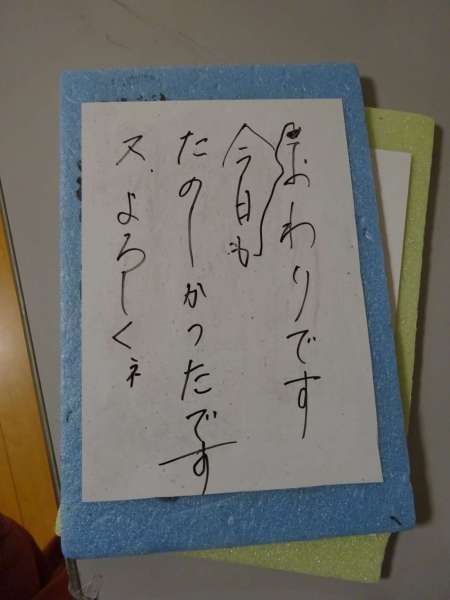 おわりです
今日も
たのしかったです
又、よろしくネ